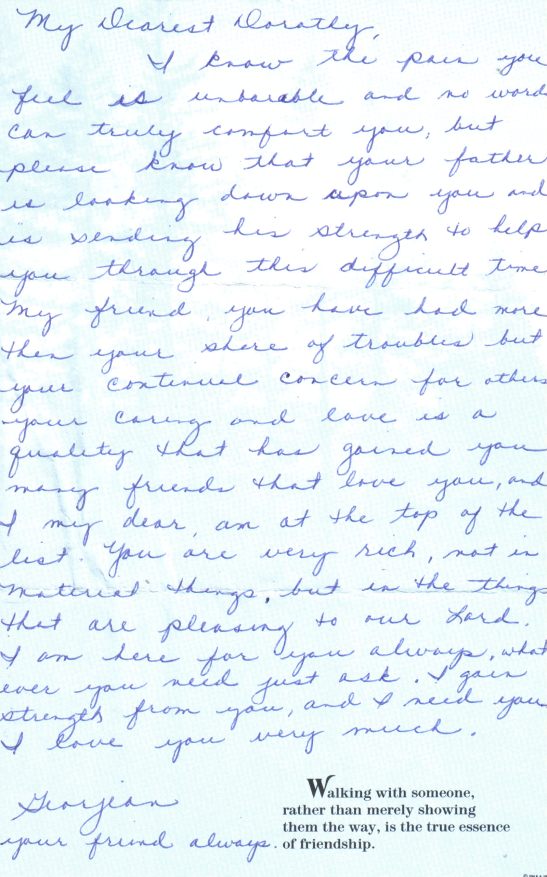 My Dearest Dorothy,
I know the pain you
feel is unbarable and no word
can truly comfort you, but
please know that your father
is looking down upon you and
is sending his strength to help
you through this difficult time
My friend, you have had more
then your share of troubles but
your continual concern for others
your caring and love is a
quality that has gained you
many friends that love you, and
I my dear, am at the top of the
list. You are very rich, not in
material things, but in the things
that are pleasing to our Lord.
I am here for you always, what
ever you need just ask. I gain
strength from you, and I need you
I love you very much.
Georjean
your friend always.
Walking with someone,
rather than merely showing
them the way, is the true essence
of friendship.